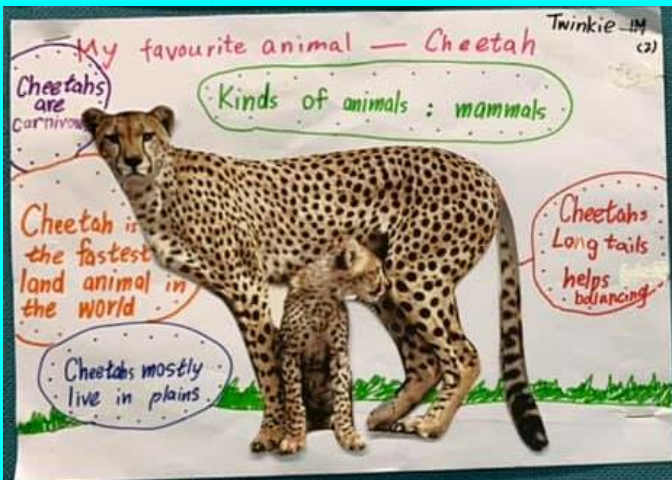 Twinkie 1M
(2)
My favourite animal — Cheetah
Cheetahs
are
Kinds of animals : mammals
Cheetah is
the fastest
land animal in
the world
Cheetahs
Long tails
helps
balancing
Cheetahs mostly
live in plains